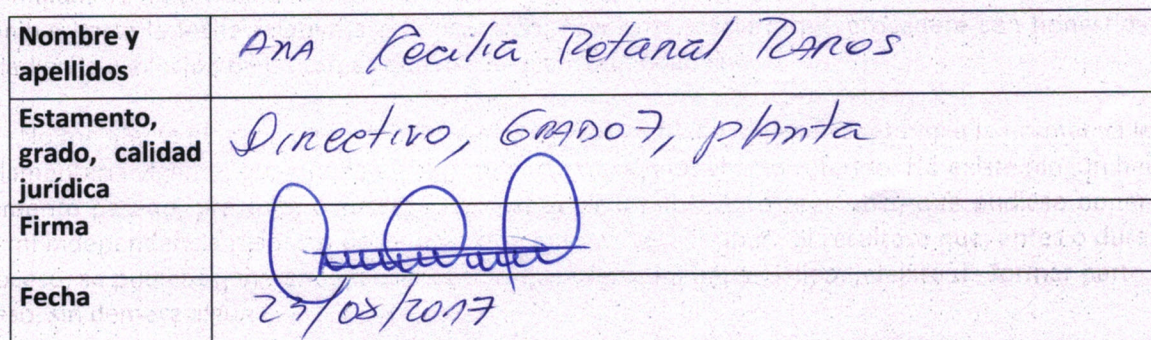 Nombre y apellidos
ANA Cecilia Retamal RAMOS
Estamento, grado, calidad jurídica
Directivo, GRADO 7, planta
Firma
Fecha
/08/2017